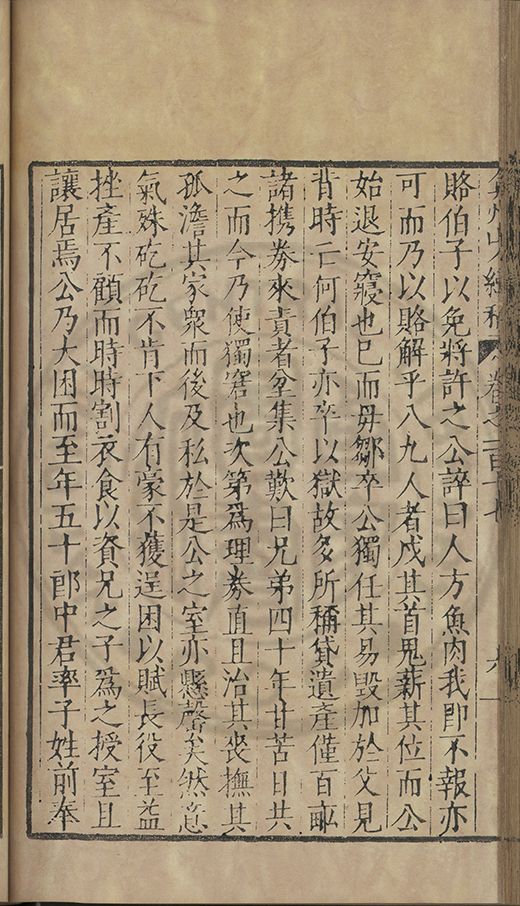 賂伯子以免將許之公誶曰人方魚肉我即不報亦
可而乃以賂解乎八九人者戍其首鬼薪其位而公
始退安寢也已而毋鄒卒公獨任其易毀加於父見
背時亡何伯子亦卒以獄故多所稱貸遺產僅百畝
諸携券來責者坌集公歎曰兄弟四十年甘苦日共
之而今乃使獨窘也次第爲理券直且治其喪撫其
孤澹其家衆而後及私於是公之室亦懸罄矣然意
氣殊矻矻不肯下人有豪不獲逞困以賦長役至益
挫產不顧而時時割衣食以資兄之子爲之授室且
讓居焉公乃大困而至年五十郎中君率子姓前奉